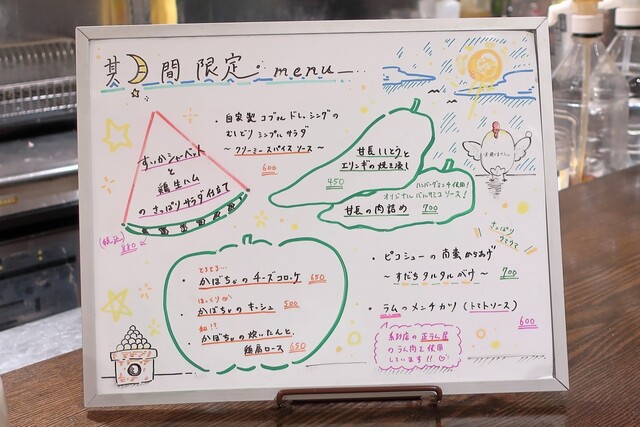 其間限定 menu
・自家製コブルドレッシングの
むしどりシンプルサラダ
〜クリーミースパイスソース〜
600
すいかシャーベット
と
鶏生ハム
のさっぱりサラダ仕立て
880
甘長ししとうと
エリンギの焼き浸し
450
ハンバーグミンチ使用!
オリジナルバルサミコソース!
甘長の肉詰め 700
とろとろ…
・かぼちゃのチーズコロッケ 650
ほっくり
・かぼちゃのキッシュ 500
和!!
・かぼちゃの炊いたんと、
鶏肩ロース 650
さっぱり
ウマウマ
・ピコシューの南蛮からあげ
〜すだちタルタルがけ〜 700
・ラムのメンチカツ(トマトソース)
600
系列店の正ラム屋
のラム肉を使用
しています!!